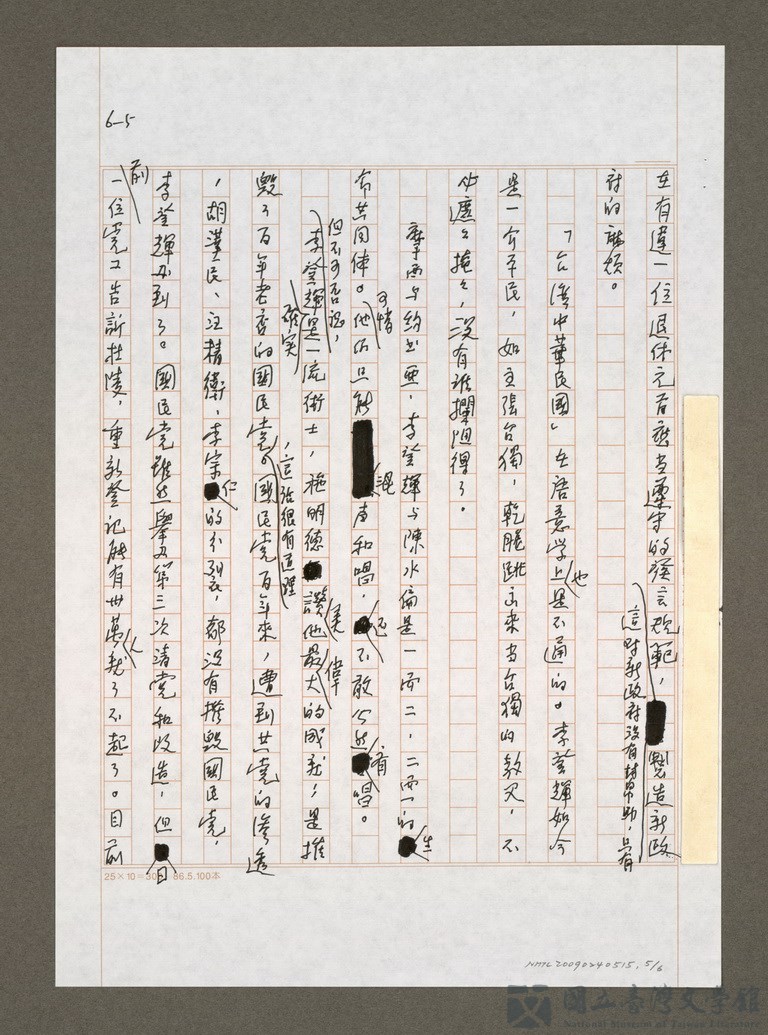 6-5
在有違一位退休元首應當遵守的發言規範，
這對新政府沒有幫助，只有
製造新政
府的麻煩。
「台灣中華民國」在語意學上也是不通的。李登輝如今
是一介平民，如主張台獨，乾脆跳出來當台獨的教父，不
必遮遮掩掩，沒有誰攔阻得了。
摩西與約書亞，李登輝與陳水扁是一而二，二而一的生
命共同体。可惜他們只能混聲和唱，還不敢公然高唱。
但不可否認，
李登輝確實是一流術士，施明德讚美他最偉大的成就，是摧
毀了百年老店的國民黨，這話很有道理。國民黨百年來，遭到共黨的滲透
，胡漢民、汪精衛、李宗仁的分裂，都沒有摧毀國民黨，
李登輝辦到了。國民黨雖然舉辦第三次清黨和改造，但日
前一位黨工告訴杜陵，重新登記能有卅萬人就了不起了。目前
25×10=300 86.5.100本
NMTL20090240515, 5/6
國立臺灣文學館
National Museum of Taiwan Literature